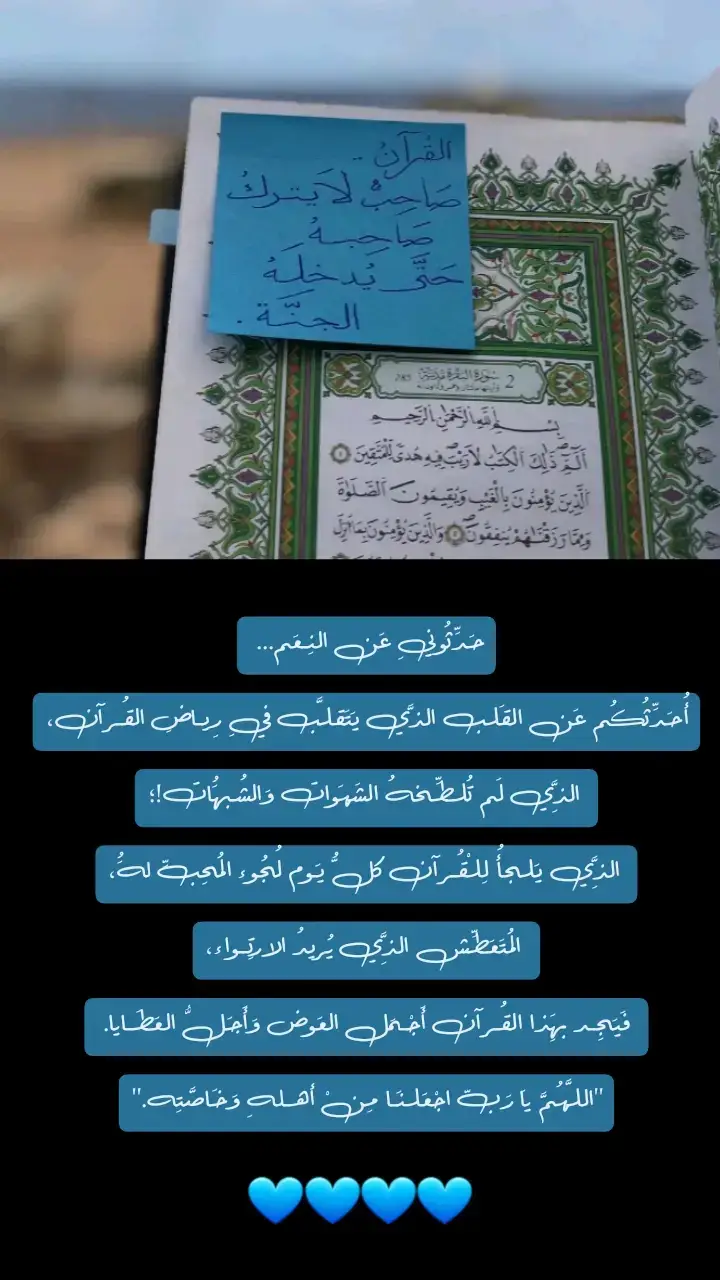 القُرآنُ ..
صَاحِبٌ لَا يَتركُ
صَاحِبهُ
حَتَّى يُدخلَهُ
الجنَّة .
2 سُورَةُ البَقَرَةِ مَدَنِيَّة
بِسْمِ اللَّهِ الرَّحْمَٰنِ الرَّحِيمِ
الٓمٓ ذَٰلِكَ الْكِتَٰبُ لَا رَيْبَ فِيهِ هُدًى لِلْمُتَّقِينَ ١
الَّذِينَ يُؤْمِنُونَ بِالْغَيْبِ وَيُقِيمُونَ الصَّلَوٰةَ
وَمِمَّا رَزَقْنَٰهُمْ يُنفِقُونَ ٢ وَالَّذِينَ يُؤْمِنُونَ بِمَا أُنزِلَ
حَدِّثُونيِ عَن النِعَم...
أُحَدِّثُكُم عَن القَلب الذَّي يتَقلَّب فيِ رِياضِ القُرآن،
الذَِّي لَم تُلطِّخهُ الشَهَوات وَالشُبهُات!؛
الذَِّي يَلجأُ لِلْقُرآن كلُّ يَوم لُجُوء المُحِبّ لهُ،
المُتَعَطِّش الذَِّي يُريدُ الارتِواء،
فَيَجِد بهَِذا القُرآن أَجْمَل العَوض وَأَجَلُّ العَطَايا.
"اللَّهُمَّ يا رَبّ اجْعَلنَا مِنْ أَهلهِ وَخَاصَّتِه."